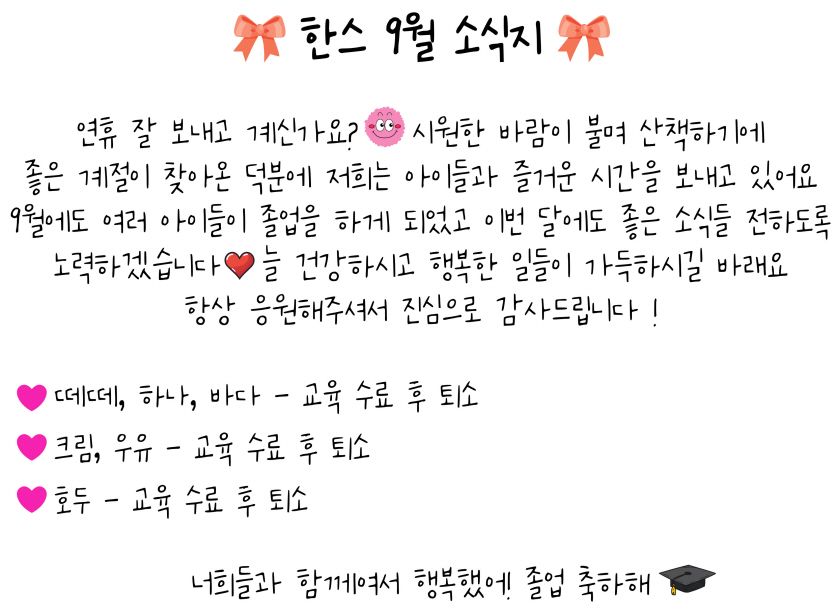 한스 9월 소식지
연휴 잘 보내고 계신가요? 시원한 바람이 불며 산책하기에
좋은 계절이 찾아온 덕분에 저희는 아이들과 즐거운 시간을 보내고 있어요
9월에도 여러 아이들이 졸업을 하게 되었고 이번 달에도 좋은 소식들 전하도록
노력하겠습니다 늘 건강하시고 행복한 일들이 가득하시길 바래요
항상 응원해주셔서 진심으로 감사드립니다 !
떼떼, 하나, 바다 - 교육 수료 후 퇴소
크림, 우유 - 교육 수료 후 퇴소
호두 - 교육 수료 후 퇴소
너희들과 함께여서 행복했어! 졸업 축하해